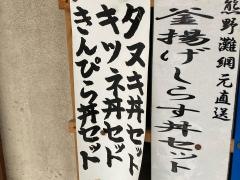 熊野灘網元直送
釜揚げしらす丼セット
タヌキ丼セット
キツネ丼セット
きんぴら丼セット